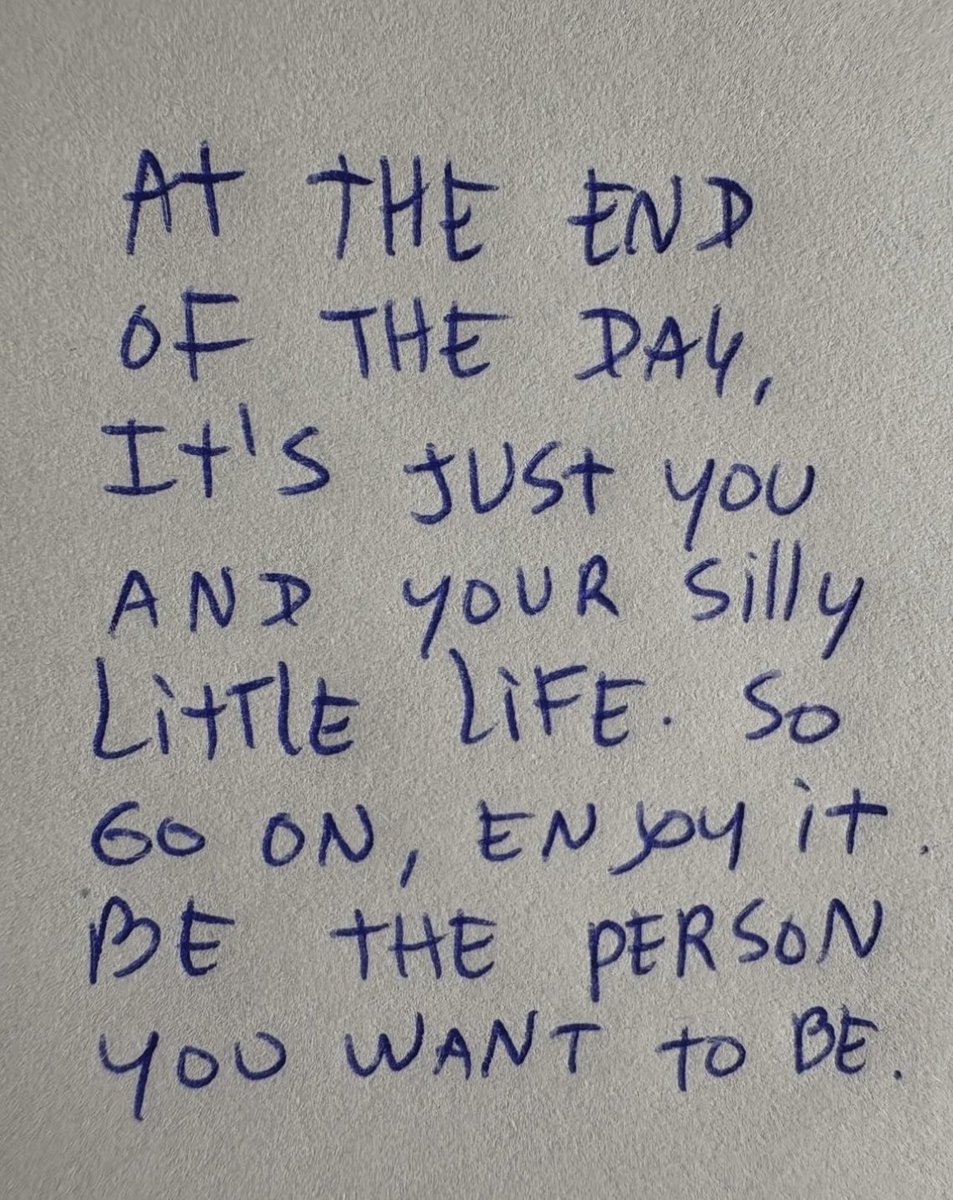 At THE END
OF THE DAY,
It's JUSt YOU
AND YOUR Silly
LittlE LiFE. So
GO ON, ENJOY it.
BE tHE PERSON
YOU WANT to BE.